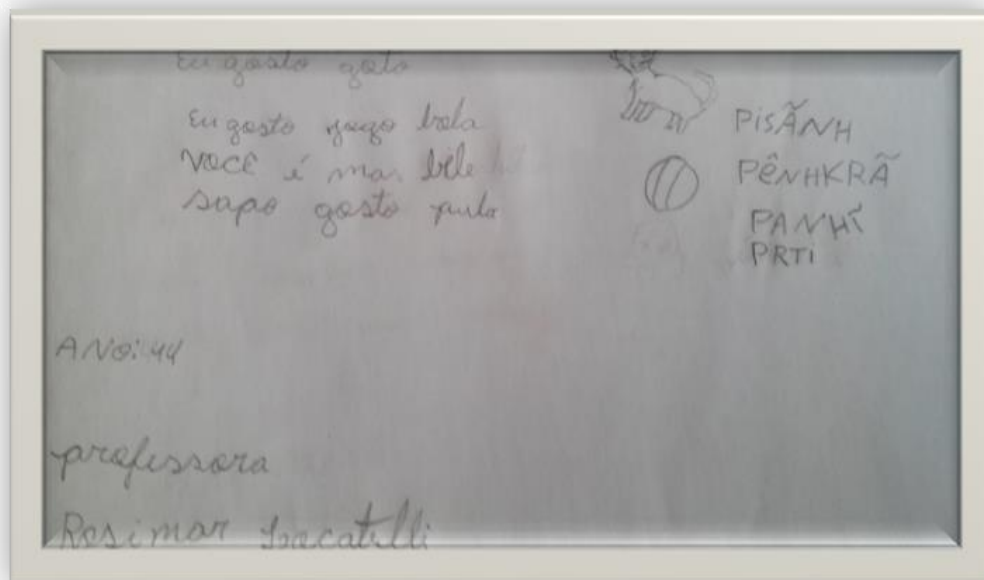 Eu gosto gato
Eu gosto jogo bola
VOCÊ é mas bele
sapo gosto pula
PISÃNH
PÊNHKRÃ
PANHĨ
PRTI
ANO: 44
professora
Rosimar